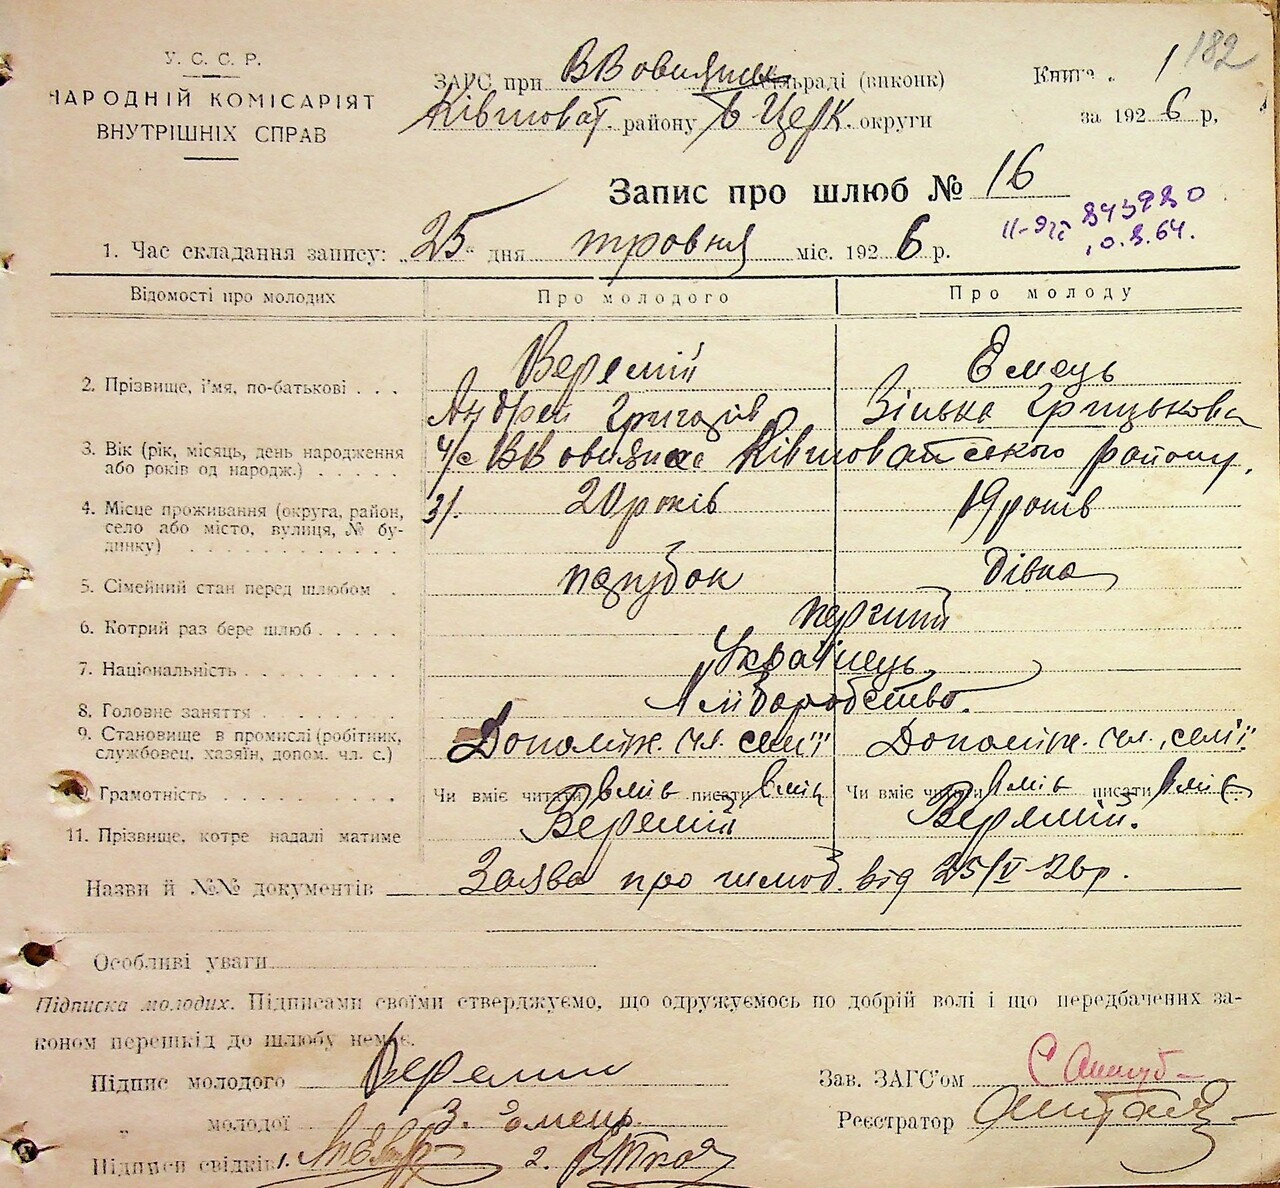 182
У. С. С. Р.
НАРОДНІЙ КОМІСАРІЯТ
ВНУТРІШНІХ СПРАВ
ЗАГС при ВВовнянськ сільраді (виконк)
Ківшоват. району Б Церк. округи
Книга 1
за 1926 р,
Запис про шлюб № 16
II-ЯЧ 843980
10.8.64.
1. Час складання запису: 25 дня травня міс. 1926 р.
Відомості про молодих
Про молодого
Про молоду
2. Прізвище, і'мя, по-батькові . . .
Веремій
Андрей Григорів
Ємець
Зінька Грицькова
3. Вік (рік, місяць, день народження
або років од народж.) . . . .
4/с ВВовнянка Ківшоватського району.
4. Місце проживання (округа, район,
село або місто, вулиця, № бу-
динку) . . . . . . . . . . . .
3/. 20 років
19 років
5. Сімейний стан перед шлюбом .
парубок
дівка
6. Котрий раз бере шлюб . . . . .
перший
7. Національність . . . . . . . . .
Українець
8. Головне заняття . . . . . . . .
Хліборобство.
9. Становище в промислі (робітник,
службовец, хазяїн, допом. чл. с.)
Допоміж. чл. сем'ї
Допоміж. чл. сем'ї.
Грамотність . . . . . . . . . .
Чи вміє читати вміє писати вміє
Чи вміє читати вміє писати вміє
11. Прізвище, котре надалі матиме
Веремій
Веремій.
Назви й №№ документів Заява про шлюб. від 25/V-26р.
Особливі уваги
Підписка молодих. Підписами своїми стверджуємо, що одружуємось по добрій волі і що передбачених за-
коном перешкід до шлюбу немає.
Підпис молодого Веремий
Зав. ЗАГС'ом
„ молодої З. Ємець
Реєстратор
Підписи свідків 1. 2.